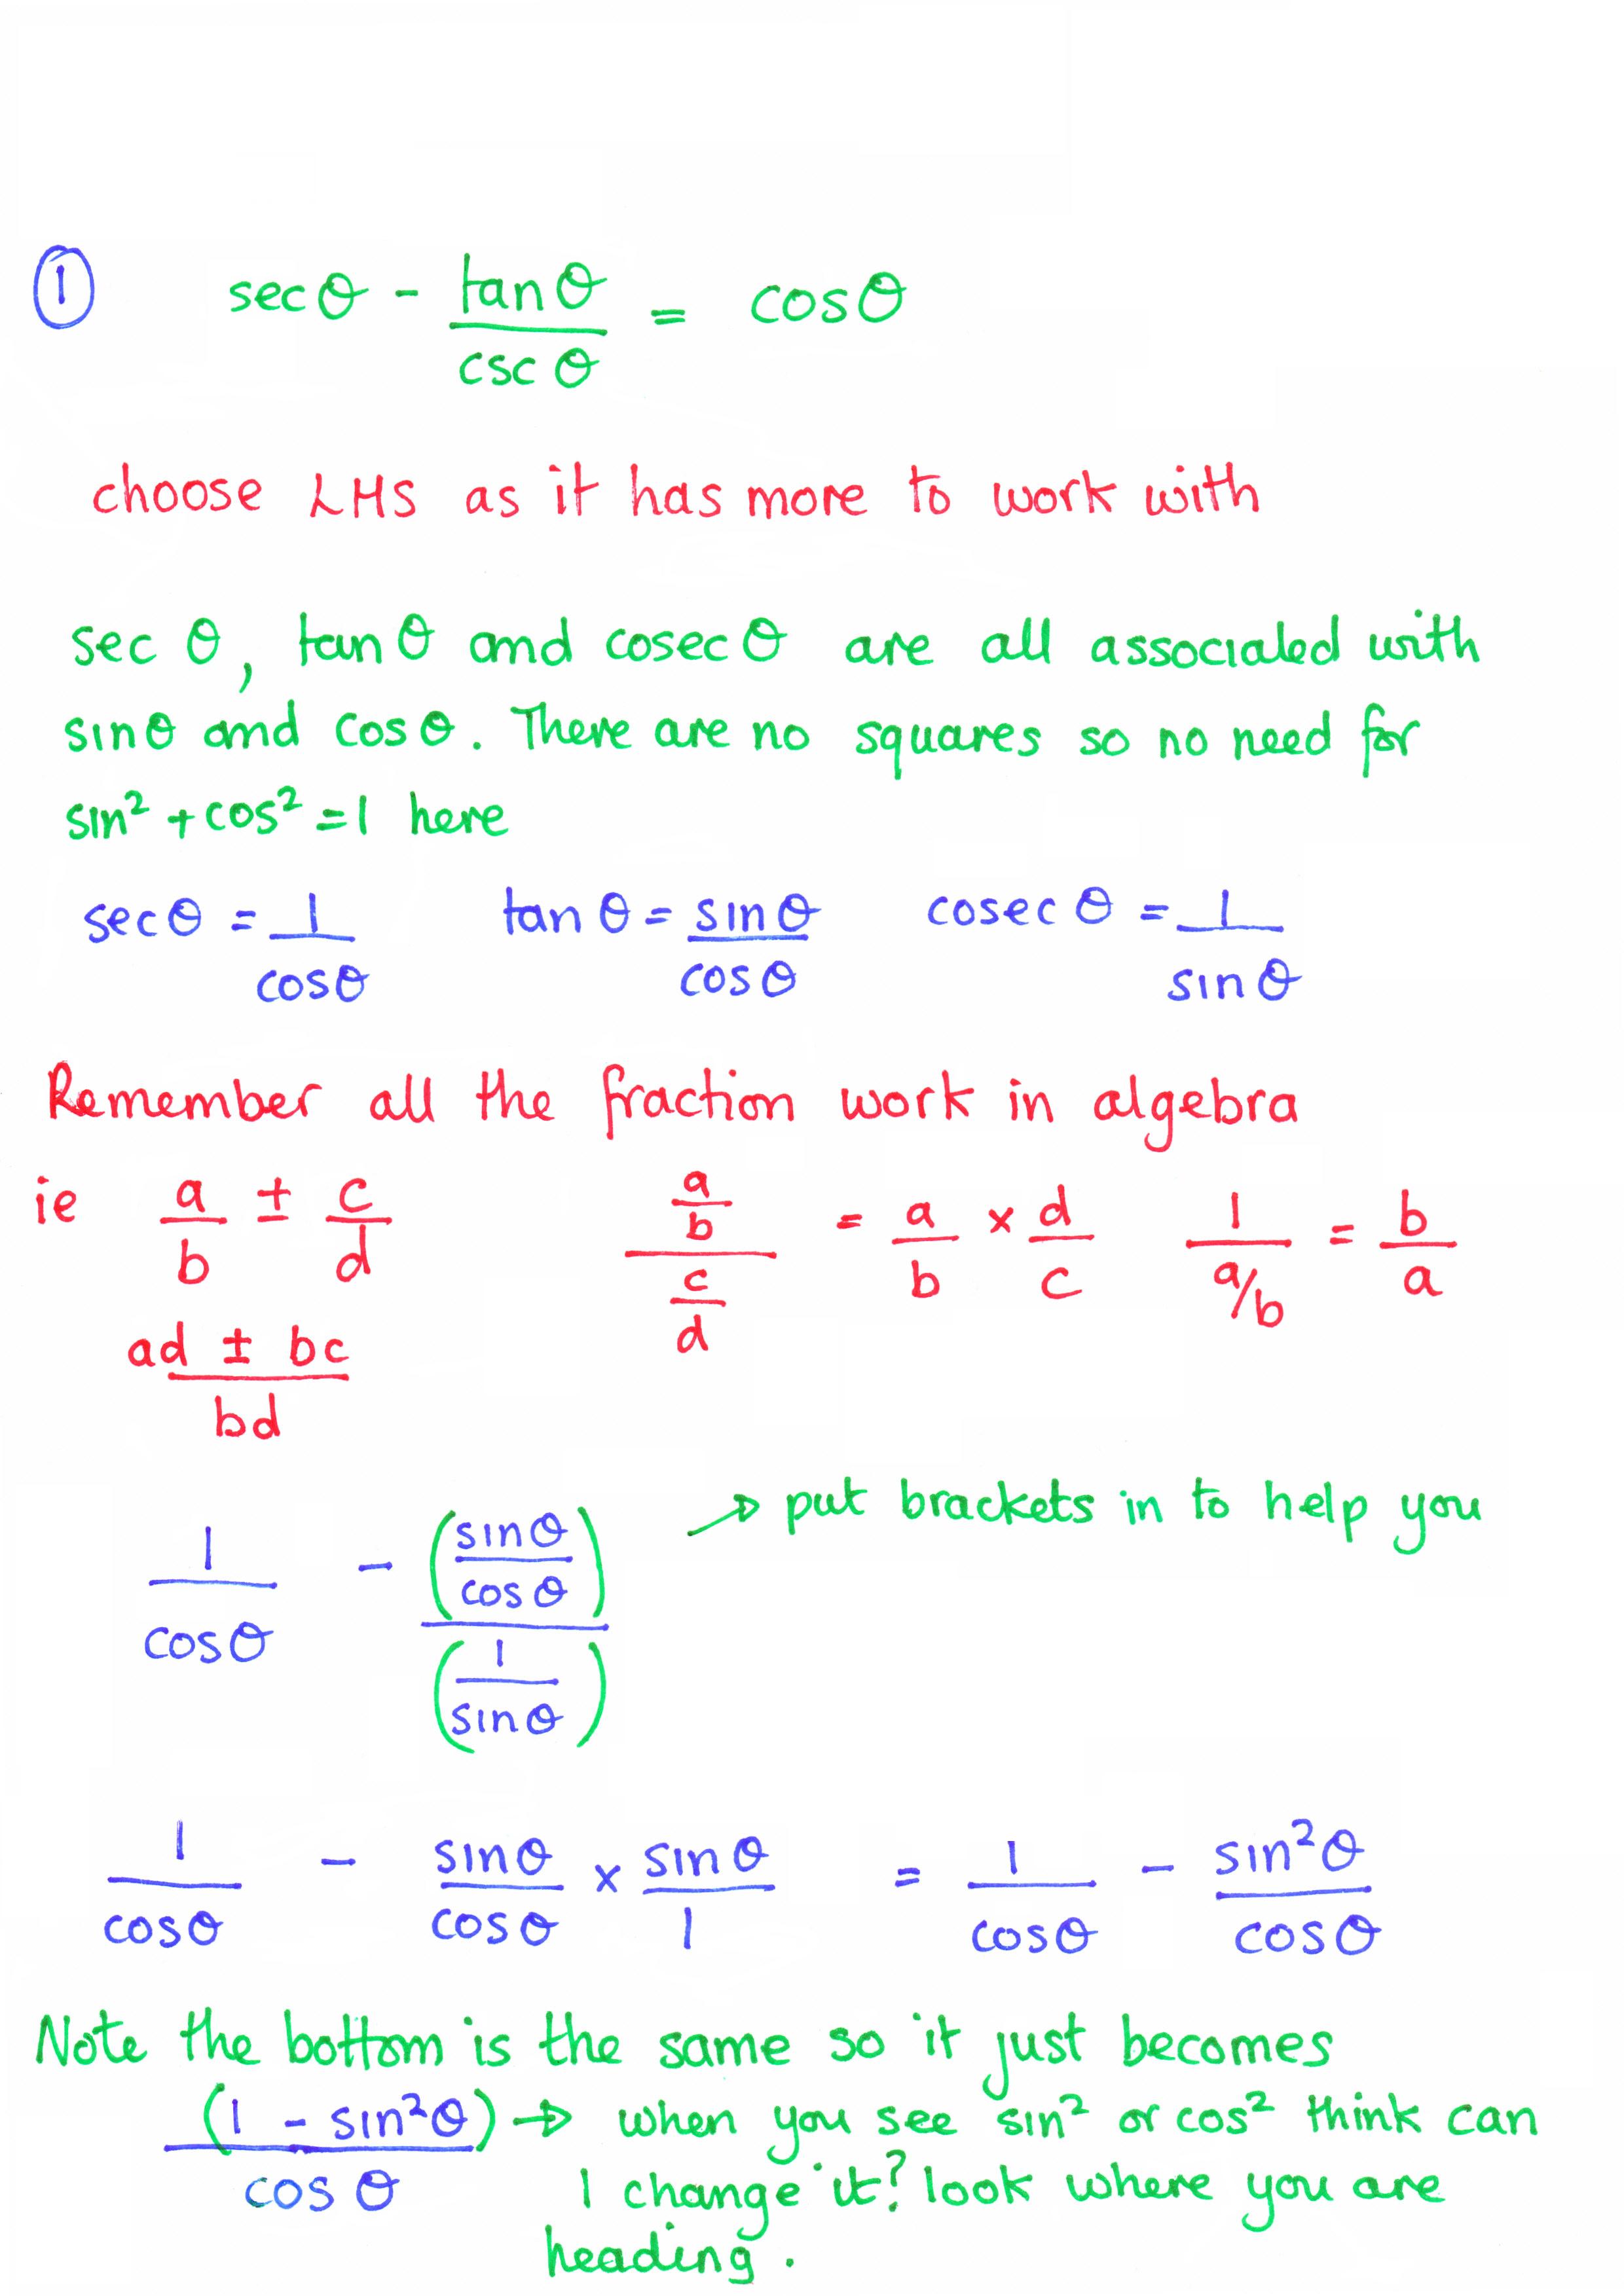 ① secθ - tanθ/cscθ = cosθ
choose LHS as it has more to work with
sec θ, tanθ and cosecθ are all associated with
sinθ and cosθ. There are no squares so no need for
sin² + cos² = 1 here
secθ = 1/cosθ tanθ = sinθ/cosθ cosecθ = 1/sinθ
Remember all the fraction work in algebra
ie a/b ± c/d (a/b)/(c/d) = a/b × d/c 1/(a/b) = b/a
(ad ± bc)/bd
1/cosθ - (sinθ/cosθ)/(1/sinθ) → put brackets in to help you
1/cosθ - sinθ/cosθ × sinθ/1 = 1/cosθ - sin²θ/cosθ
Note the bottom is the same so it just becomes
(1 - sin²θ)/cosθ → when you see sin² or cos² think can
I change it? look where you are
heading.